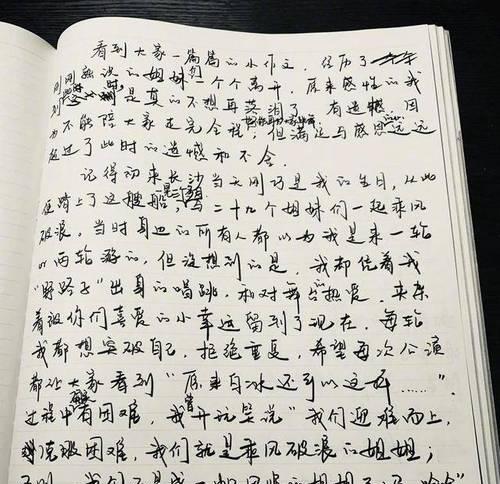 看到大家一篇篇的小作文，经历了
刚刚熟识的姐妹们一个个离开，原来感性的我
到 时，是真的不想再哭泪了。有遗憾，因
为不能陪大家走完全程，但满足与感恩远远
超过了此时的遗憾和不舍。
记得初来长沙当天刚巧是我的生日，从此
便踏上了这艘船，与二十九个姐妹们一起乘风
破浪，当时身边的所有人都以为我是来一轮
或两轮游的，但没想到的是，我却凭着我
“野路子”出身的唱跳，和对舞台热爱，夹杂
着被你们喜爱的小幸运留到了现在，每轮
我都想突破自己，拒绝重复，希望每次公演
都让大家看到“原来白冰还可以这样……”。
过程中有困难，我曾开玩笑说“我们迎难而上，
克服困难，我们就是乘风破浪的姐姐；
否则，我们不是成一帆风顺的姐姐了吗，哈哈”